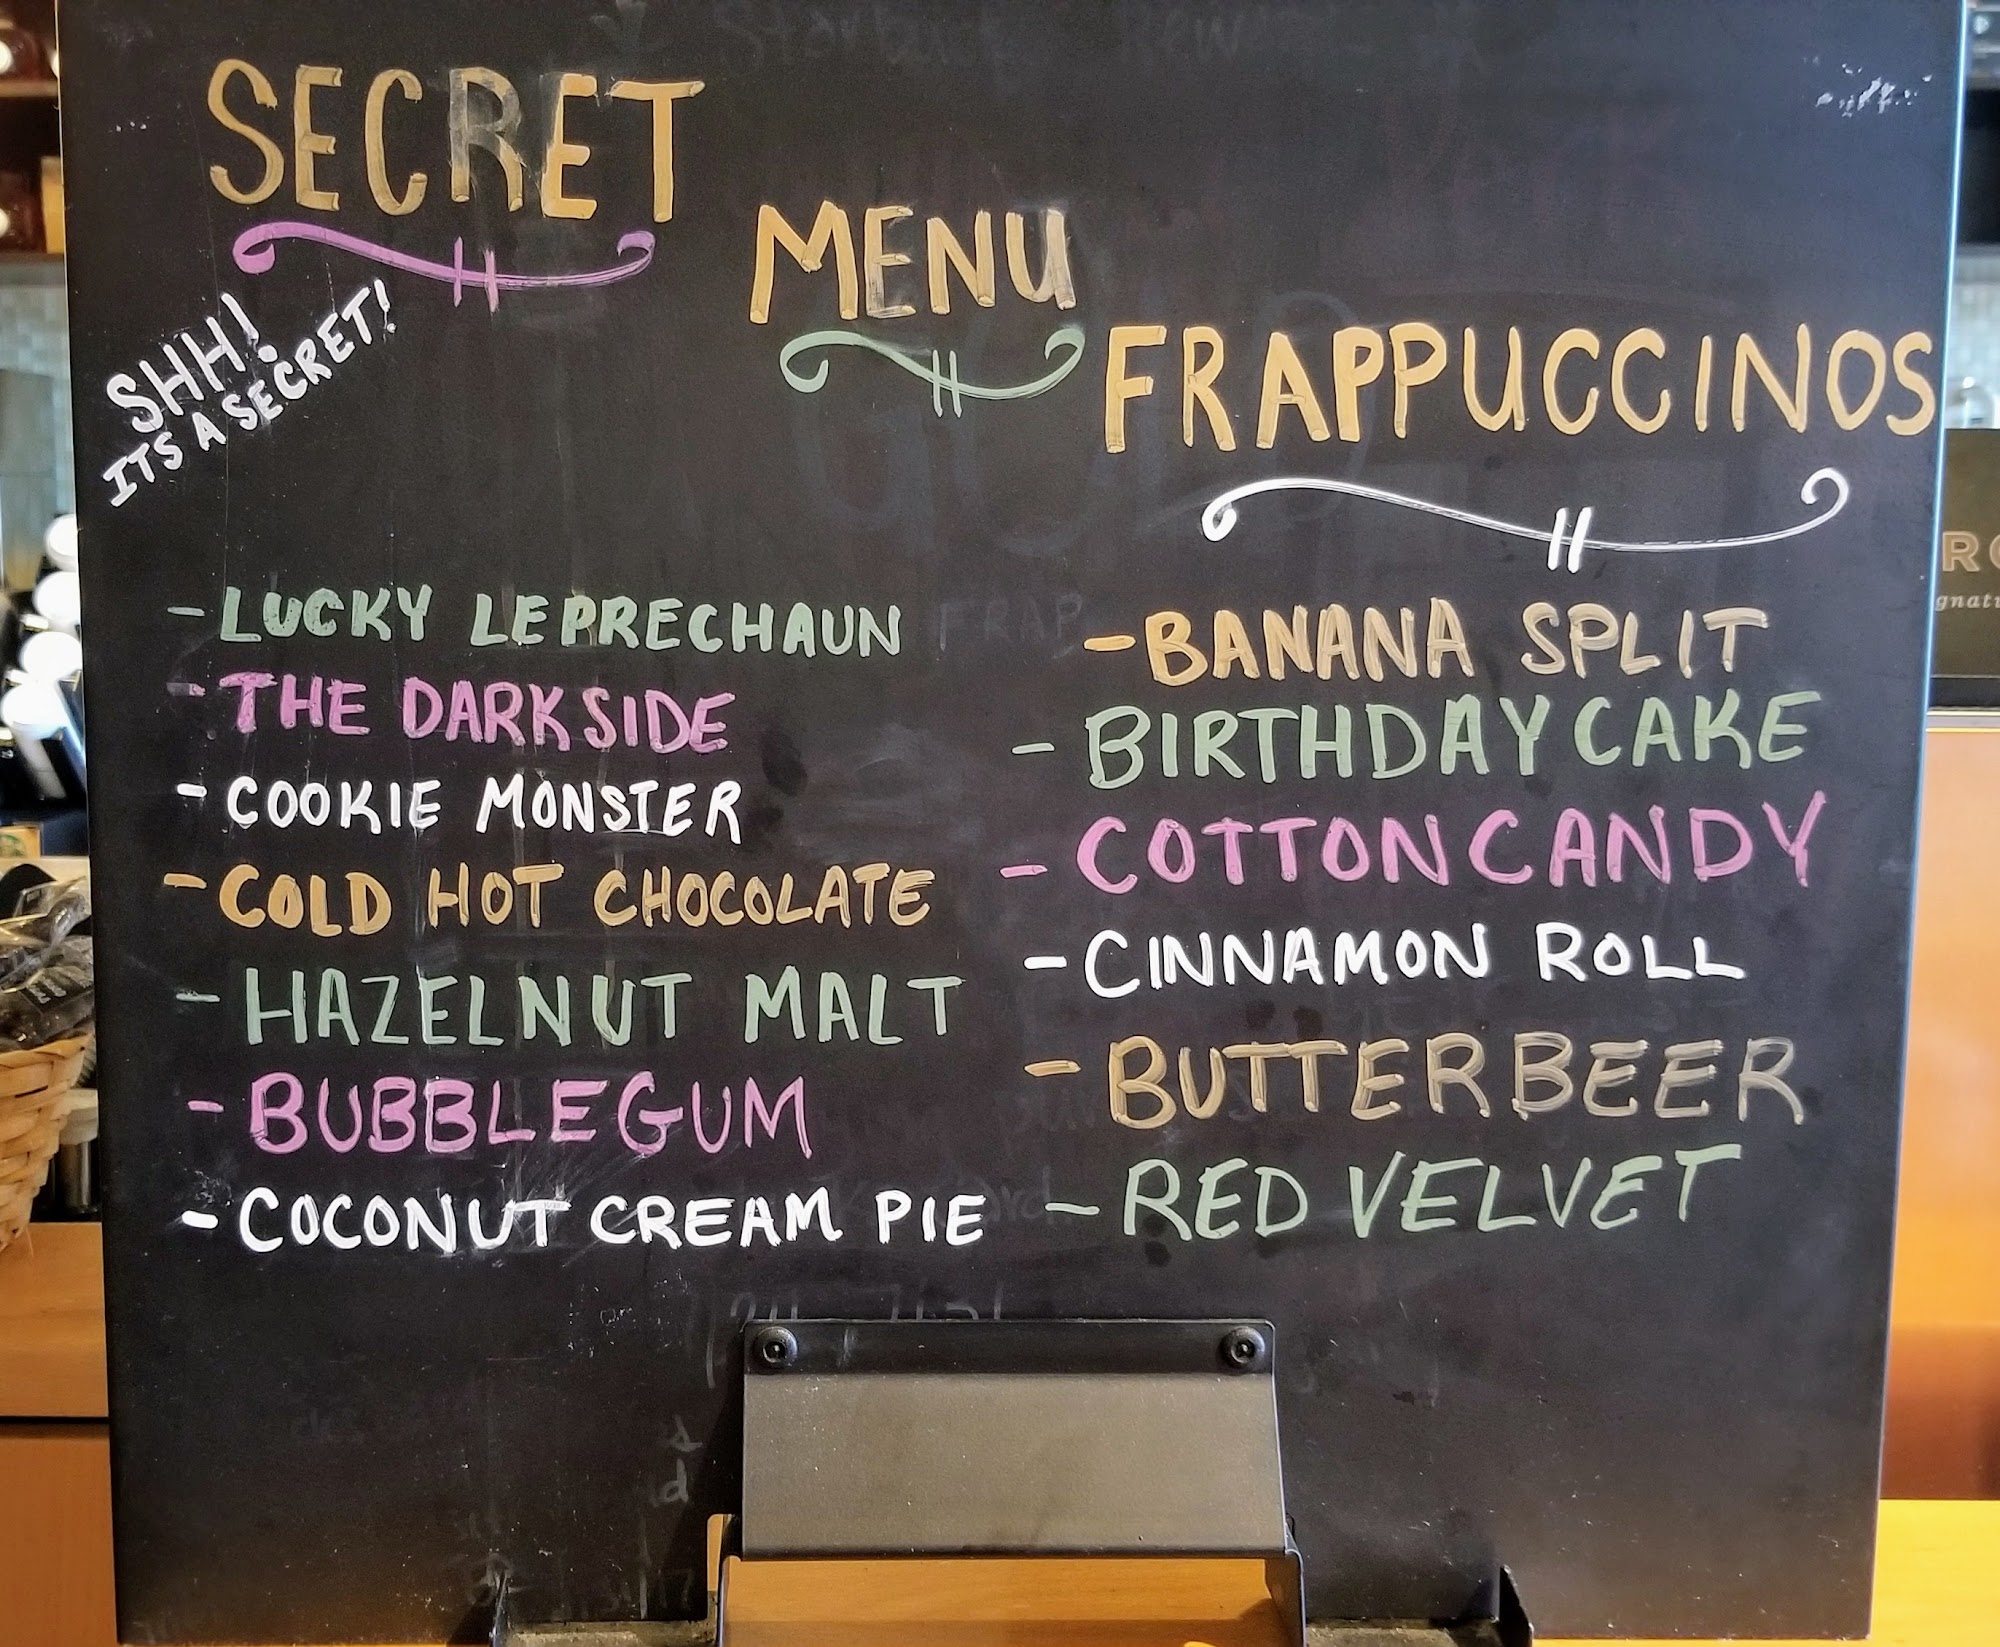 SECRET
MENU
FRAPPUCCINOS
SHH!
ITS A SECRET!
- LUCKY LEPRECHAUN
- THE DARKSIDE
- COOKIE MONSTER
- COLD HOT CHOCOLATE
- HAZELNUT MALT
- BUBBLEGUM
- COCONUT CREAM PIE
- BANANA SPLIT
- BIRTHDAY CAKE
- COTTON CANDY
- CINNAMON ROLL
- BUTTERBEER
- RED VELVET
FRAP